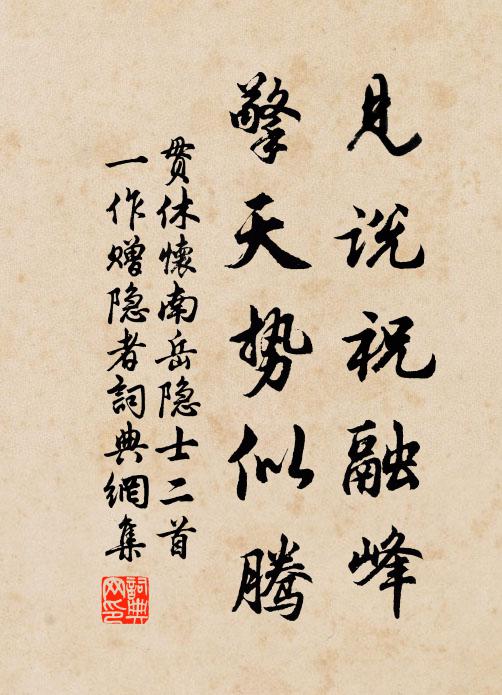 见说祝融峰
擎天势似腾
贯休懷南岳隐士二首
一作赠隐者詞典網集
詞典网印